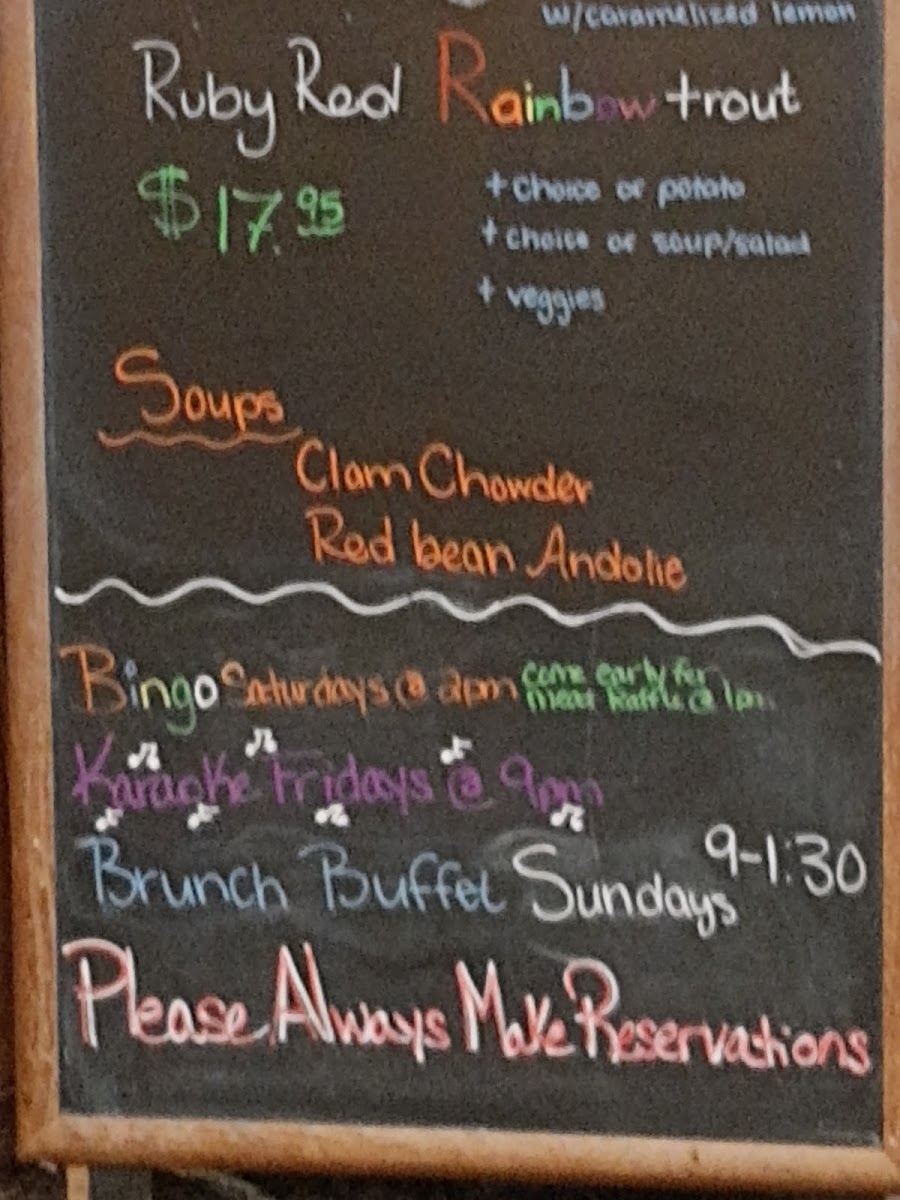 w/caramelized lemon
Ruby Red Rainbow trout
$17.95
+ choice of potato
+ choice of soup/salad
+ veggies
Soups
Clam Chowder
Red bean Andolie
Bingo Saturdays @ 2pm come early for
meat Raffle @ 1pm
Karaoke Fridays @ 9pm
Brunch Buffet Sundays 9-1:30
Please Always Make Reservations